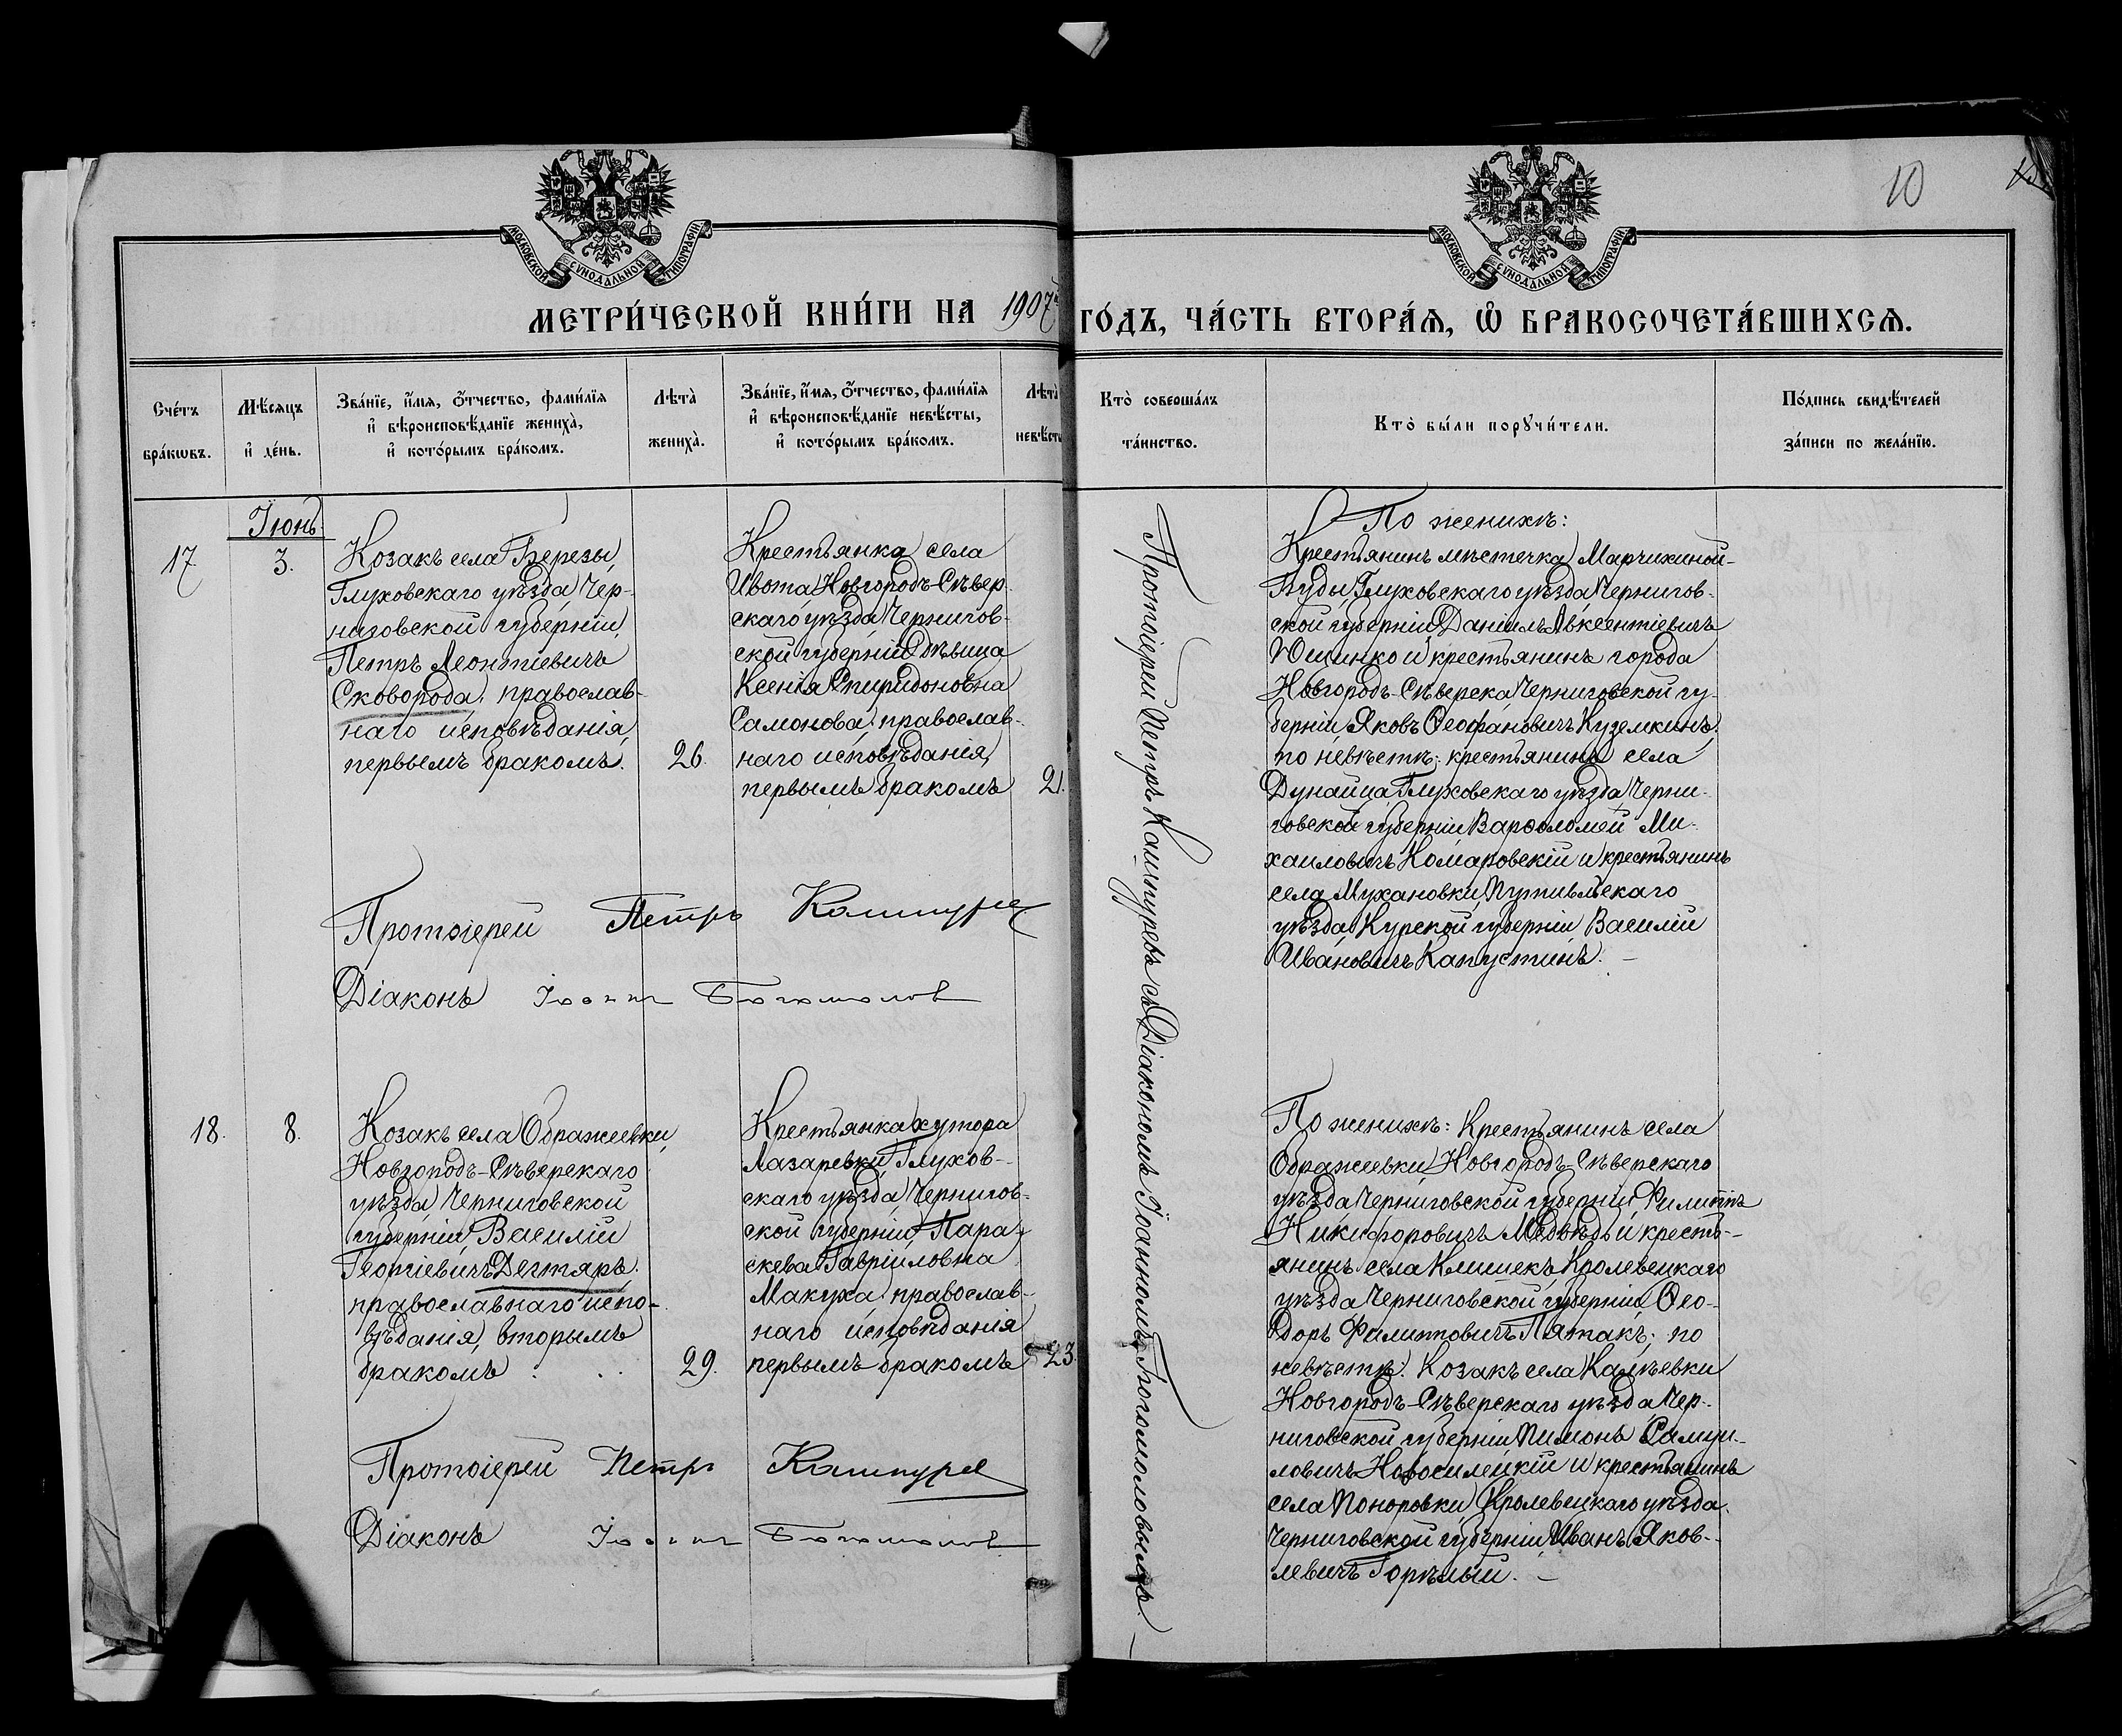 10
МОСКОВСКОЙ СѴНОДАЛЬНОЙ ТИПОГРАФІИ
МОСКОВСКОЙ СѴНОДАЛЬНОЙ ТИПОГРАФІИ
МЕТРИ́ЧЕСКОЙ КНИ́ГИ НА 1907й ГО́ДЪ, ЧА́СТЬ ВТОРА́Ѧ, Ѽ БРАКОСОЧЕТА́ВШИХСѦ.
Сче́тъ
бра́кѡвъ.
Мѣ́сяцъ
и҆ де́нь.
Зва́нїе, и҆́мя, ѻ҆́тчество, фами́лїя
и҆ вѣроисповѣ́данїе жениха̀,
и҆ кото́рымъ бра́комъ.
Лѣта̀
жениха̀.
Зва́нїе, и҆́мя, ѻ҆́тчество, фами́лїя
и҆ вѣроисповѣ́данїе невѣ́сты,
и҆ кото́рымъ бра́комъ.
Лѣта̀
невѣ́сты
Кто̀ соверша́лъ
та́инство.
Кто̀ бы́ли порꙋчи́тели.
По́дпись свидѣ́телей
за́писи по жела́нїю.
Іюнь.
17
3.
Козакъ села Березы,
Глуховскаго уѣзда Чер-
ниговской губерніи,
Петръ Леонтіевичъ
Сковорода, православ-
наго исповѣданія,
первымъ бракомъ.
26.
Крестьянка села
Ивота Новгородъ-Сѣвер-
скаго уѣзда Чернигов-
ской губерніи дѣвица
Ксенія Спиридоновна
Самонова, православ-
наго исповѣданія,
первымъ бракомъ
21.
Протоіерей Петръ Кашпуревъ съ Діакономъ Іоанномъ Богомоловымъ. —
По женихѣ:
Крестьянинъ мѣстечка Марчихиной-
Буды, Глуховскаго уѣзда Чернигов-
ской губерніи Даніилъ Авксентіевичъ
Юшинко и крестьянинъ города
Новгородъ-Сѣверска Черниговской гу-
берніи, Яковъ Ѳеофановичъ Куземкинъ;
по невѣстѣ: крестьянинъ села
Дунайца Глуховскаго уѣзда, Черни-
говской губерніи Варѳоломей Ми-
хаиловичъ Комаровскій и крестьянинъ
села Мухановки, Путивльскаго
уѣзда, Курской губерніи Василій
Ивановичъ Капустинъ. —
Протоіерей Петръ Кашпуре
Діаконъ Іоаннъ Богомолов
18.
8.
Козакъ села Ображеевки,
Новгородъ-Сѣверскаго
уѣзда, Черниговской
губерніи Василій
Георгіевичъ Дегтярь,
православнаго испо-
вѣданія, вторымъ
бракомъ . . .
29.
Крестьянка хутора
Лазаревки Глухов-
скаго уѣзда, Чернигов-
ской губерніи, Пара-
скева Гавріиловна
Макуха, православ-
наго исповѣданія
первымъ бракомъ
23.
По женихѣ: Крестьянинъ села
Ображеевки, Новгородъ-Сѣверскаго
уѣзда Черниговской губерніи, Филиппъ
Никифоровичъ Медвѣдь и кресть-
янинъ села Клишекъ Кролевецкаго
уѣзда Черниговской губерніи, Ѳео-
доръ Филипповичъ Пятакъ; по
невѣстѣ: Козакъ села Калѣевки
Новгородъ-Сѣверскаго уѣзда Чер-
ниговской губерніи Пимонъ Самуи-
ловичъ Новосилецкій и крестьянинъ
села Поноровки, Кролевецкаго уѣзда,
Черниговской губерніи, Иванъ Яков-
левичъ Горѣлый. —
Протоіерей Петръ Кашпуре
Діаконъ Іоаннъ Богомолов